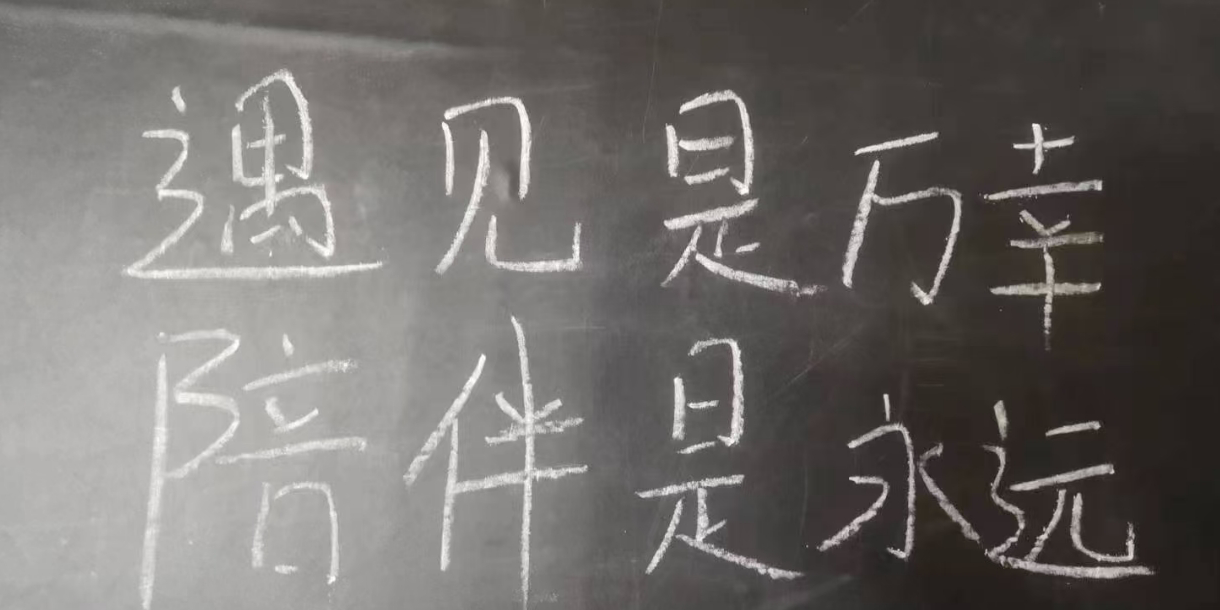 遇见是万幸
陪伴是永远